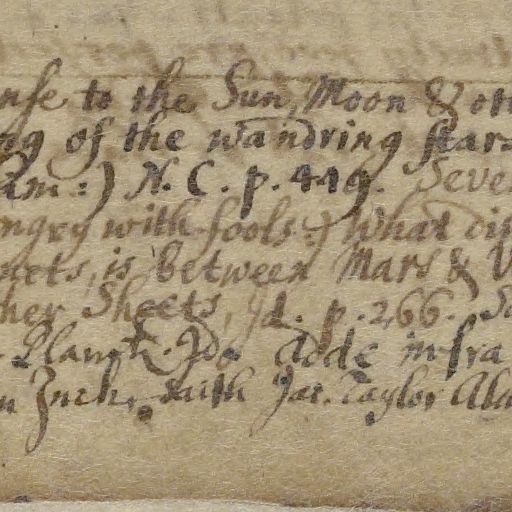 nse to the Sun, Moon & ot
ng of the wandring star
am:) N. C. p. 449. Seve
ngry with fools:) What di
nets, is between Mars & V
her Sheets, Id. p. 266. S
Adde infra
n Inch, saith Jar. Taylor